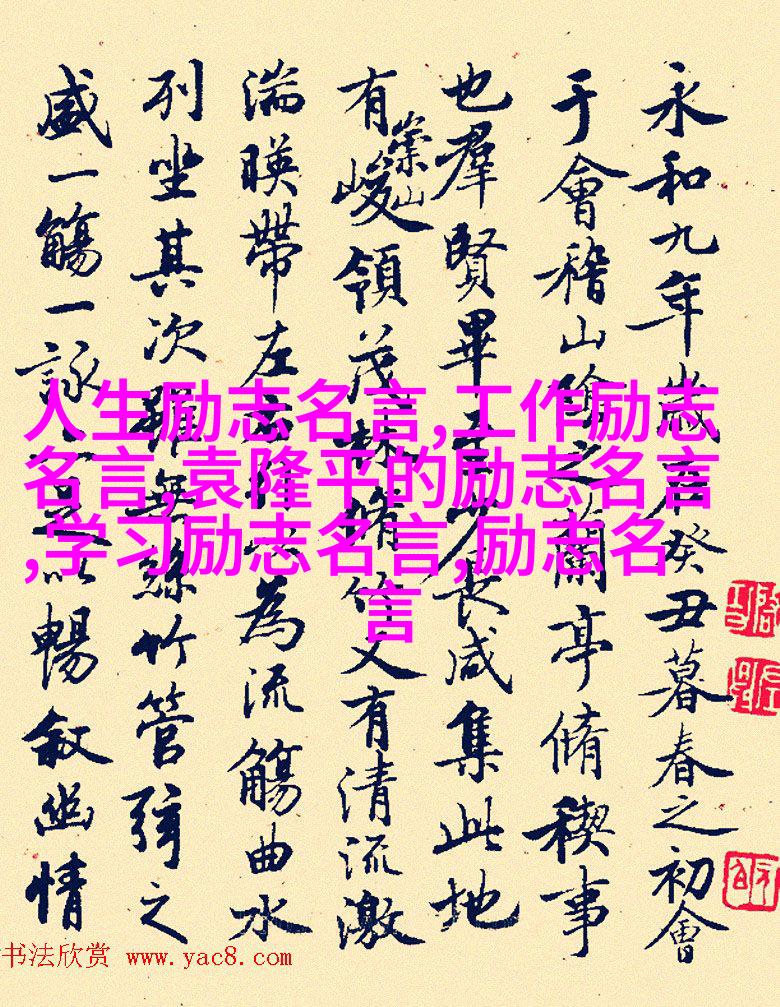 永和九年歲在癸丑暮春之初會
于會稽山陰之蘭亭脩稧事
也羣賢畢至少長咸集此地
有崇山峻領茂林脩竹又有清流激
湍暎帶左右引以為流觴曲水
列坐其次雖無絲竹管弦之
盛一觴一詠亦足以暢敘幽情
人生励志名言,工作励志
名言,袁隆平的励志名言
,学习励志名言,励志名
言
书法欣赏 www.yac8.com